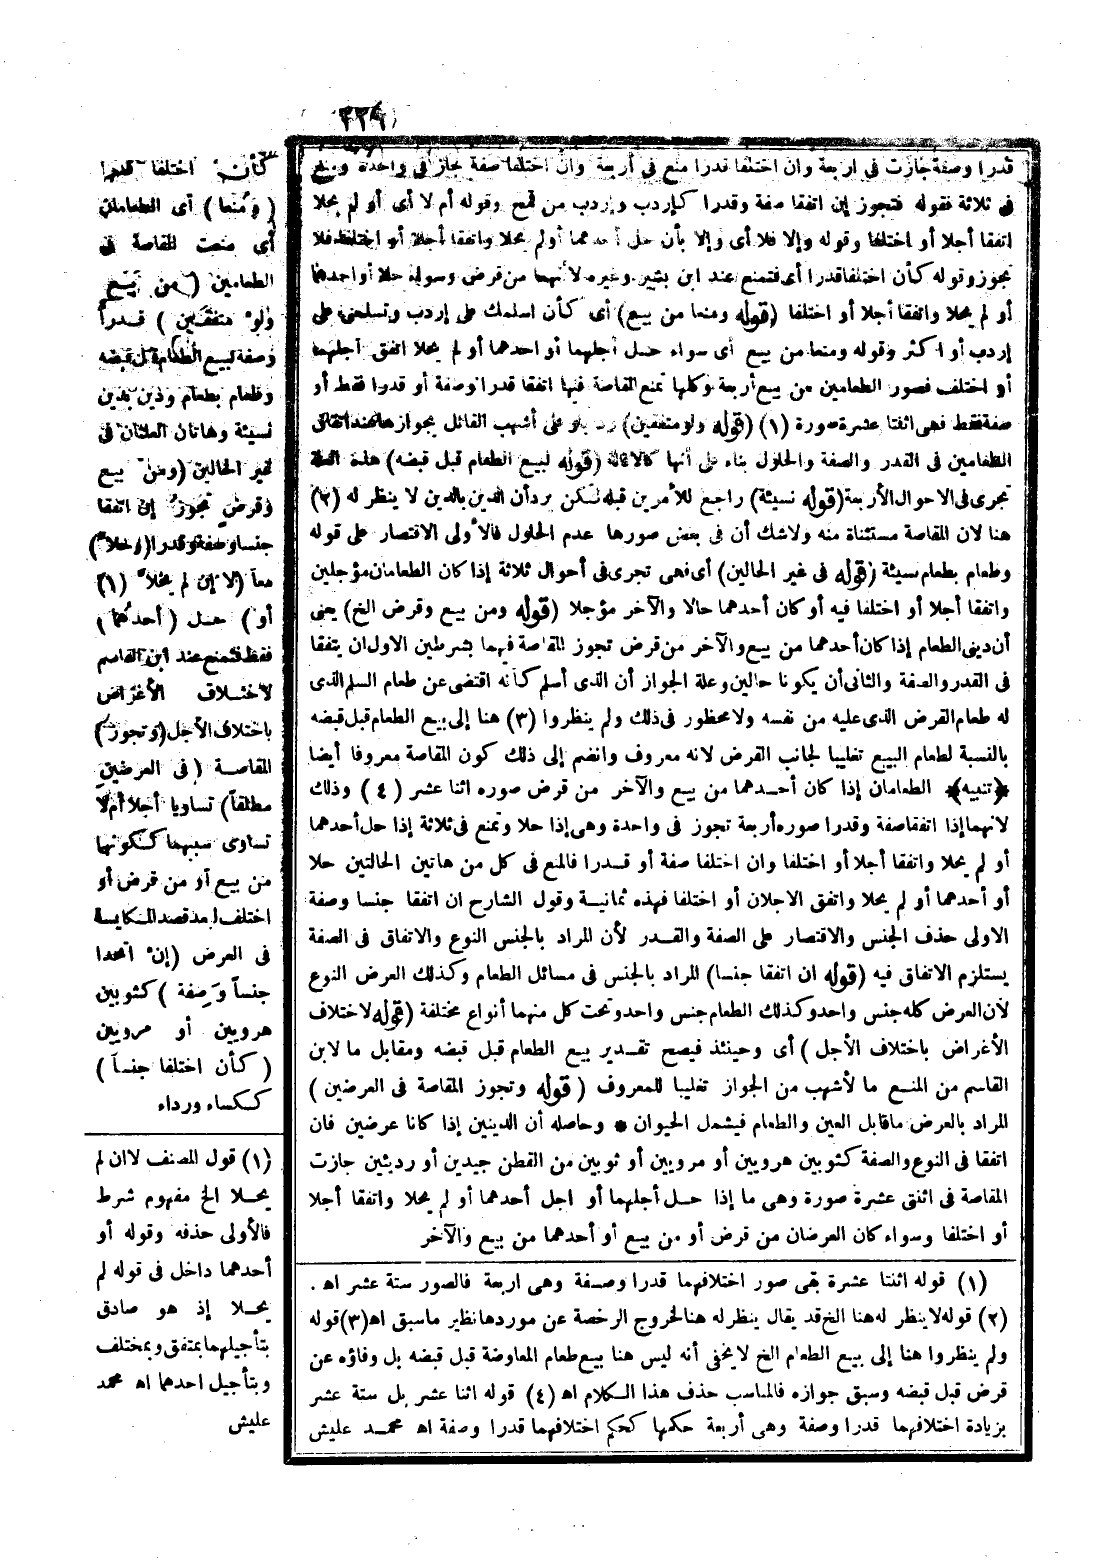 ٢٢٩
قدرا وصفة جازت فى اربعة وان اختلفا قدرا منع فى أربعة وان اختلفا صفة جاز فى واحدة ومنع
فى ثلاثة فقوله فتجوز إن اتفقا صفة وقدرا كإردب وإردب من قمح وقوله أم لا أى أو لم يحلا
اتفقا أجلا أو اختلفا وقوله وإلا فلا أى وإلا بأن حل أحدهما أو لم يحلا واتفقا أجلا أو اختلفا فلا
تجوز وقوله كأن اختلفا قدرا أى فتمنع عند ابن بشير وغيره لأنهما من قرض وسواء حلا أو احدهما
أو لم يحلا واتفقا أجلا أو اختلفا (قوله ومنعا من بيع) أى كأن اسلمك على إردب وتسلمنى على
إردب أو اكثر وقوله ومنعا من بيع أى سواء حل أجلهما أو احدهما أو لم يحلا اتفق أجلهما
أو اختلف فصور الطعامين من بيع أربعة وكلها تمنع المقاصة فيها اتفقا قدرا وصفة أو قدرا فقط أو
صفة فقط فهى اثنتا عشرة صورة (١) (قوله ولو متفقين) رد بلو على أشهب القائل بجوازها عند اتفاق
الطعامين فى القدر والصفة والحلول بناء على أنها كالاقالة (قوله لبيع الطعام قبل قبضه) هذه العلة
تجرى فى الاحوال الأربعة (قوله نسيئة) راجع للأمرين قبله لكن يرد أن الدين بالدين لا ينظر له (٢)
هنا لان المقاصة مستثناة منه ولاشك أن فى بعض صورها عدم الحلول فالأولى الاقتصار على قوله
وطعام بطعام نسيئة (قوله فى غير الحالين) أى فهى تجرى فى أحوال ثلاثة إذا كان الطعامان مؤجلين
واتفقا أجلا أو اختلفا فيه أو كان أحدهما حالا والآخر مؤجلا (قوله ومن بيع وقرض الخ) يعنى
أن دينى الطعام إذا كان أحدهما من بيع والآخر من قرض تجوز المقاصة فيهما بشرطين الاول ان يتفقا
فى القدر والصفة والثانى أن يكونا حالين وعلة الجواز أن الذى أسلم كأنه اقتضى عن طعام السلم الذى
له طعام القرض الذى عليه من نفسه ولا محظور فى ذلك ولم ينظروا (٣) هنا إلى بيع الطعام قبل قبضه
بالنسبة لطعام البيع تغليبا لجانب القرض لانه معروف وانضم إلى ذلك كون المقاصة معروفا أيضا
﴿تنبيه﴾ الطعامان إذا كان أحدهما من بيع والآخر من قرض صوره اثنا عشر (٤) وذلك
لانهما إذا اتفقا صفة وقدرا صوره أربعة تجوز فى واحدة وهى إذا حلا وتمنع فى ثلاثة إذا حل أحدهما
أو لم يحلا واتفقا أجلا أو اختلفا وان اختلفا صفة أو قدرا فالمنع فى كل من هاتين الحالتين حلا
أو أحدهما أو لم يحلا واتفق الاجلان أو اختلفا فهذه ثمانية وقول الشارح ان اتفقا جنسا وصفة
الاولى حذف الجنس والاقتصار على الصفة والقدر لأن المراد بالجنس النوع والاتفاق فى الصفة
يستلزم الاتفاق فيه (قوله ان اتفقا جنسا) المراد بالجنس فى مسائل الطعام وكذلك العرض النوع
لأن العرض كله جنس واحد وكذلك الطعام جنس واحد وتحت كل منهما أنواع مختلفة (قوله لاختلاف
الأغراض باختلاف الأجل) أى وحينئذ فيصح تقدير بيع الطعام قبل قبضه ومقابل ما لابن
القاسم من المنع ما لأشهب من الجواز تغليبا للمعروف (قوله وتجوز المقاصة فى العرضين)
المراد بالعرض ماقابل العين والطعام فيشمل الحيوان * وحاصله أن الدينين إذا كانا عرضين فان
اتفقا فى النوع والصفة كثوبين هرويين أو مرويين أو ثوبين من القطن جيدين أو رديئين جازت
المقاصة فى اثنتى عشرة صورة وهى ما إذا حل أجلهما أو اجل أحدهما أو لم يحلا واتفقا أجلا
أو اختلفا وسواء كان العرضان من قرض أو من بيع أو أحدهما من بيع والآخر
(١) قوله اثنتا عشرة بقى صور اختلافهما قدرا وصفة وهى اربعة فالصور ستة عشر اه.
(٢) قوله لا ينظر له هنا الخ قد يقال ينظر له هنا لخروج الرخصة عن موردها نظير ما سبق اه (٣) قوله
ولم ينظروا هنا إلى بيع الطعام الخ لا يخفى أنه ليس هنا بيع طعام المعاوضة قبل قبضه بل وفاؤه عن
قرض قبل قبضه وسبق جوازه فالمناسب حذف هذا الكلام اه (٤) قوله اثنا عشر بل ستة عشر
بزيادة اختلافهما قدرا وصفة وهى أربعة حكمها كحكم اختلافهما قدرا وصفة اه محمد عليش
كأن اختلفا قدرا
(ومُنعا) أى الطعامان
أى منعت المقاصة فى
الطعامين (من بَيْع
ولو متفقَين) قدراً
وصفة لبيع الطعام قبل قبضه
وطعام بطعام ودين بدين
نسيئة وهاتان العلتان فى
غير الحالين (ومن بيع
وقرض تجوزُ إن اتفقا)
جنسا وصفة وقدرا (وحلا)
معاً (لا إن لم يحلا) (١)
أو) حل (أحدُهما)
فقط فتمنع عند ابن القاسم
لاختلاف الأغراض
باختلاف الأجل (وتجوز)
المقاصة (فى العرضينِ
مطلقاً) تساويا أجلا أم لا
تساوى سببهما ككونهما
من بيع أو من قرض أو
اختلف لبعد قصد المكايسة
فى العرض (إن اتحدا
جنساً وصِفة) كثوبين
هرويين أو مرويين
(كأن اختلفا جنسا)
ككساء ورداء
(١) قول المصنف لا ان لم
يحلا الخ مفهوم شرط
فالأولى حذفه وقوله أو
أحدهما داخل فى قوله لم
يحلا إذ هو صادق
بتأجيلهما بمتفق وبمختلف
وبتأجيل احدهما اه محمد
عليش